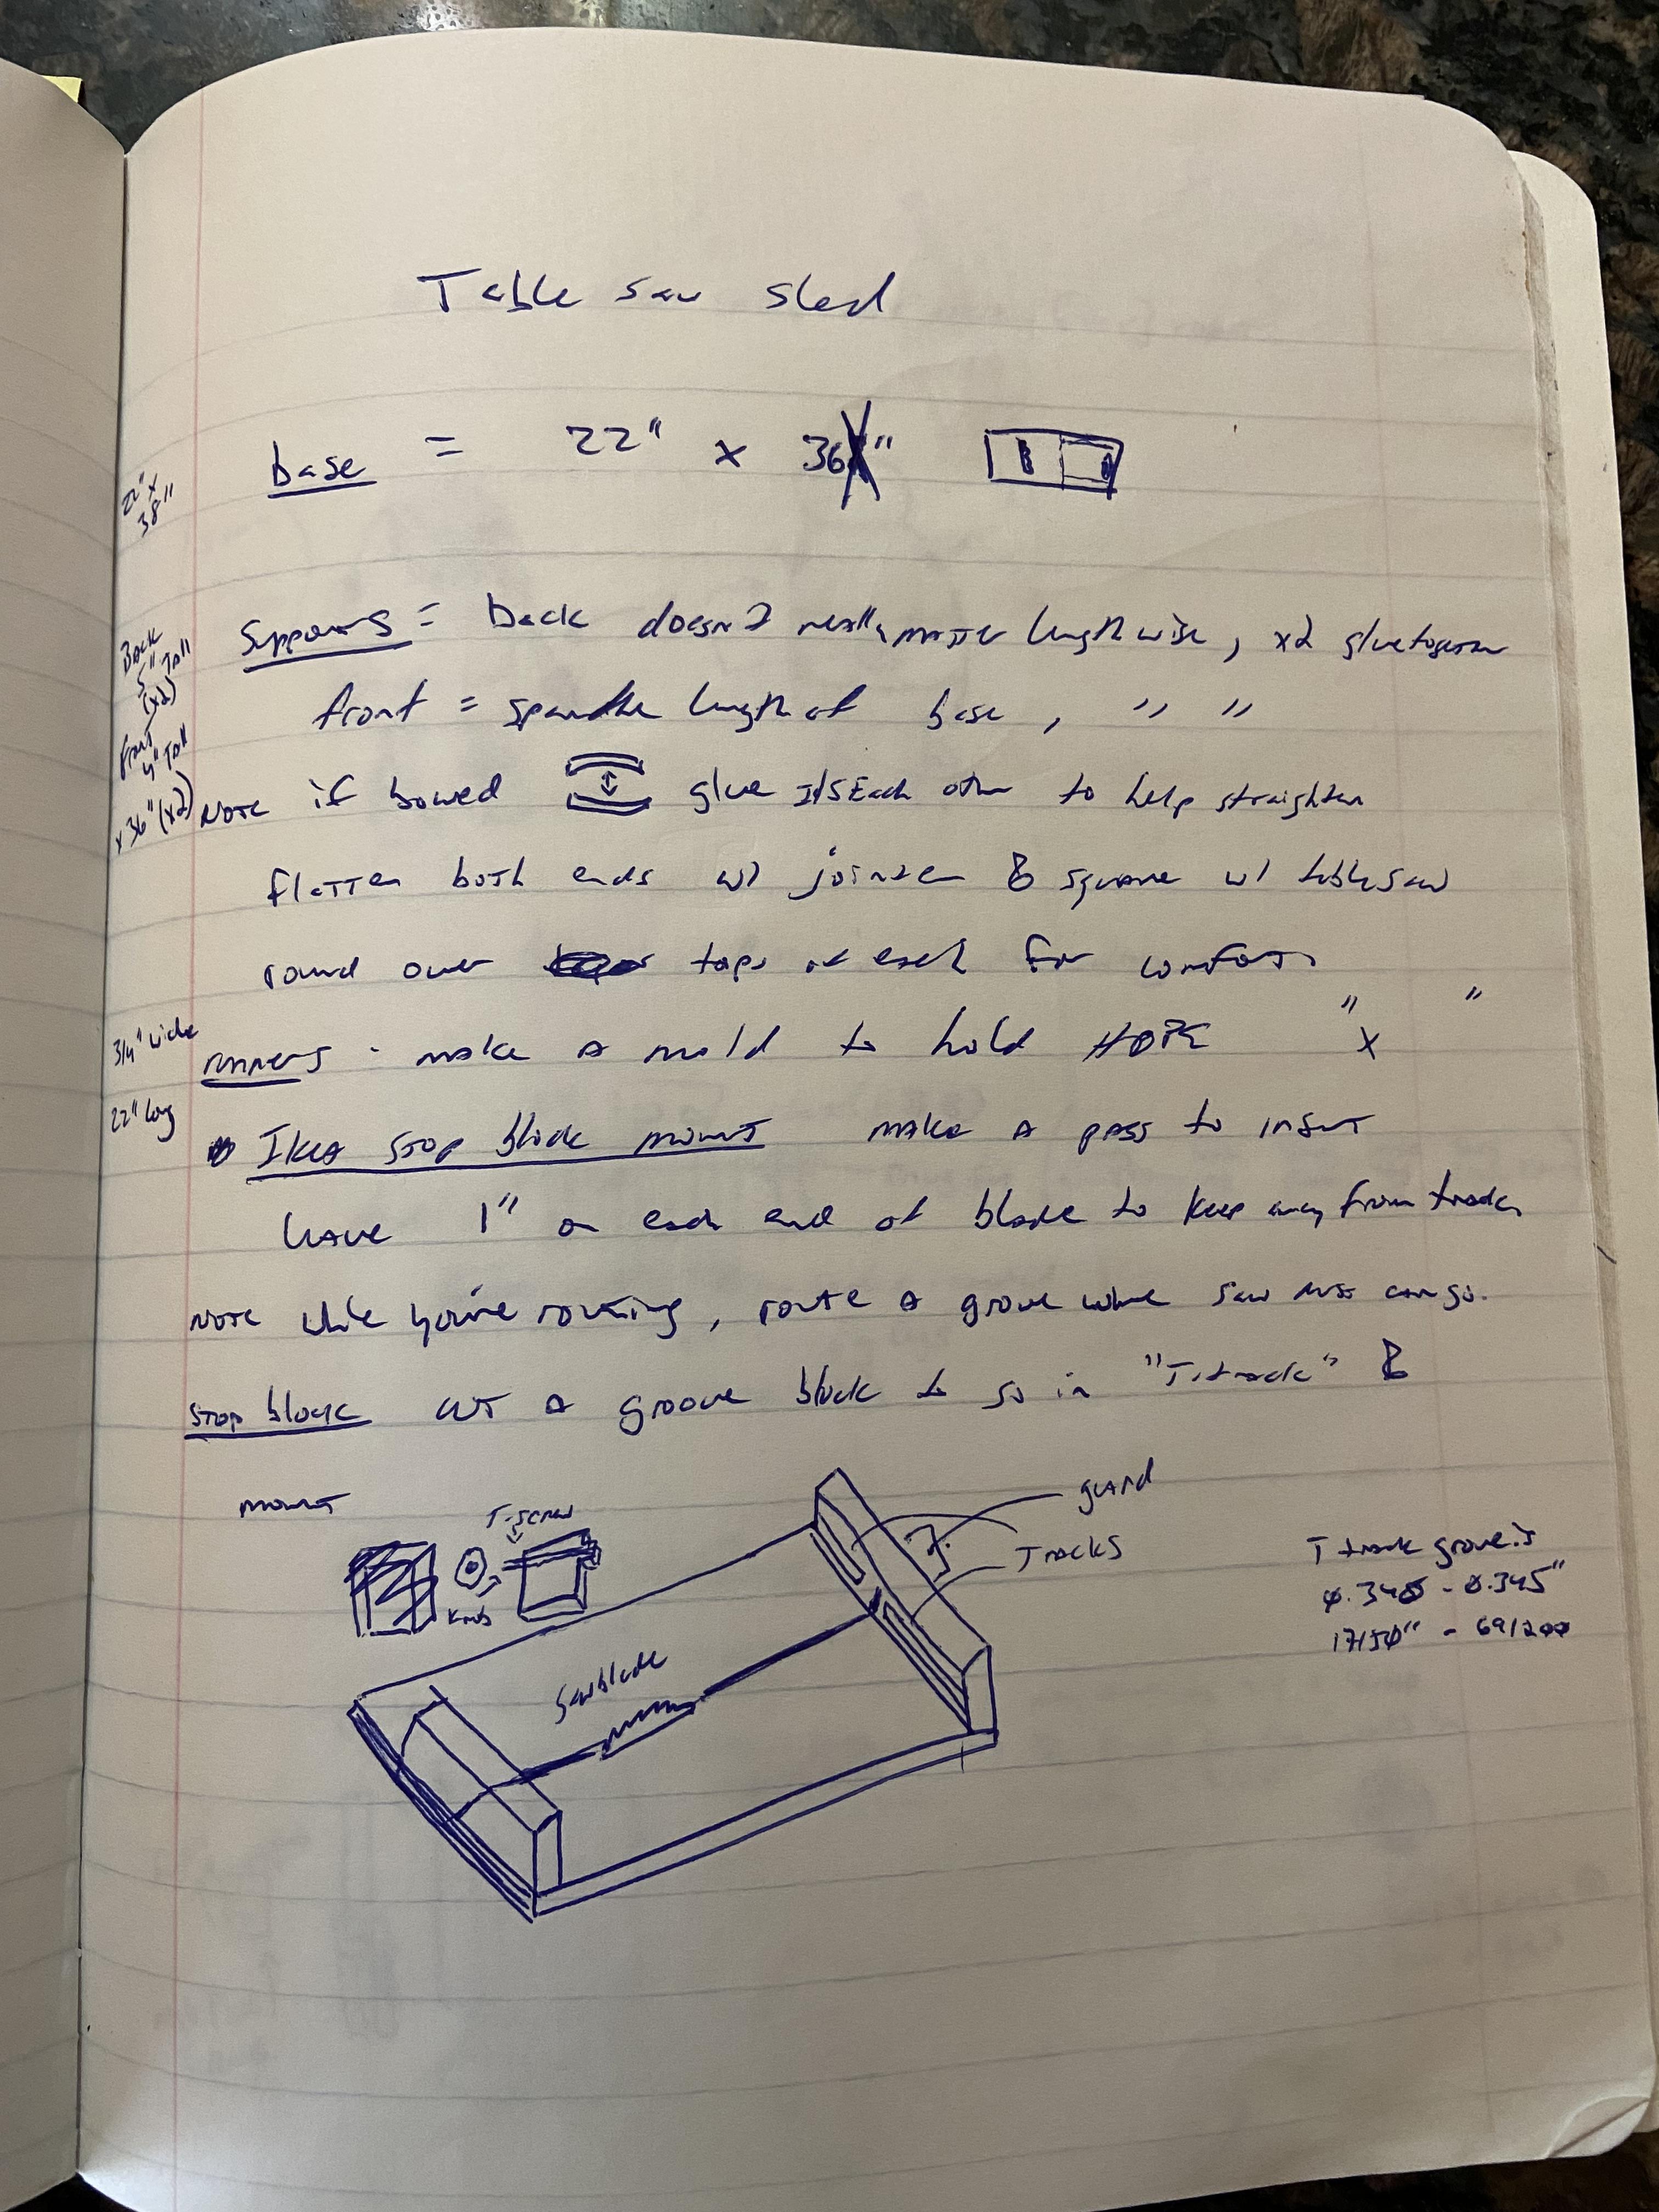 Table saw sled
base = 22" x 36"
22" x
38"
Supports = back doesn't really matter lengthwise, x2 glue together
Back
5" Tall
(x2)
front = span the length of base, " "
front
4" Tall
x 36" (x2)
Note if bowed glue Each other to help straighten
flatten both ends w/ jointer & square w/ table saw
round over tops of each for comfort
3/4" wide
runners - make a mold to hold HDPE " x "
22" long
stop block mount make a pass to insert
leave 1" on each end of blade to keep away from track
Note while you're routing, route a grove where saw dust can go.
Stop block cut a groove block to go in "T-track" &
mount
T-screw
Knob
guard
Tracks
Sawblade
T track grove is
0.340 - 0.345"
17/50" - 69/200